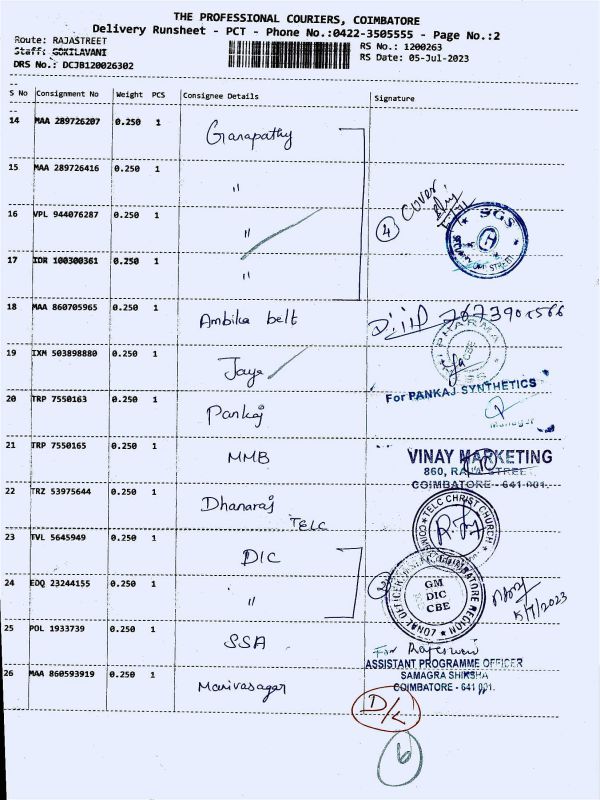 THE PROFESSIONAL COURIERS, COIMBATORE
Delivery Runsheet - PCT - Phone No.:0422-3505555 - Page No.:2
Route: RAJASTREET
RS No.: 1200263
Staff: GOKILAVANI
RS Date: 05-Jul-2023
DRS No.: DCJB120026302
S No Consignment No Weight PCS Consignee Details Signature
14 MAA 289726207 0.250 1 Ganapathy
15 MAA 289726416 0.250 1 "
16 VPL 944076287 0.250 1 "
4 Cover
SGS
17 IDR 100300361 0.250 1 "
18 MAA 860705965 0.250 1 Ambika belt
PHARMA
CBE
19 IXM 503898880 0.250 1 Jaya
For PANKAJ SYNTHETICS
20 TRP 7550163 0.250 1 Pankaj
Manager
21 TRP 7550165 0.250 1 MMB
VINAY MARKETING
860, RAJA STREET,
COIMBATORE - 641 001.
22 TRZ 53975644 0.250 1 Dhanaraj
TELC
TELC CHRIST CHURCH
23 TVL 5645949 0.250 1 DIC
24 EDQ 23244155 0.250 1 "
2
GM
DIC
CBE
COIMBATORE REGION
5/7/2023
25 POL 1933739 0.250 1 SSA
For Rajeswari
ASSISTANT PROGRAMME OFFICER
SAMAGRA SHIKSHA
COIMBATORE - 641 001.
26 MAA 860593919 0.250 1 Manivasagar
D/L
6